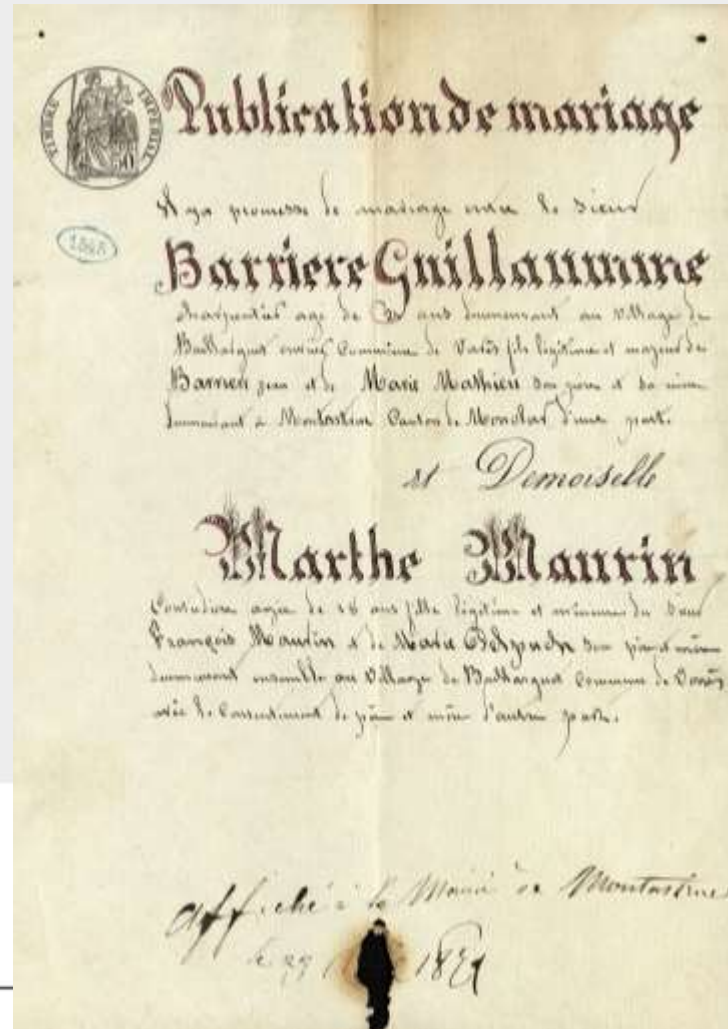 TIMBRE IMPERIAL
50
Publication de mariage
Il y a promesse de mariage entre le Sieur
1868
Barriere Guillaumme
charpentier age de ans demeurant au village de
Commune de Varès fils légitime et majeur de
Barriere jean et de Marie Mathieu son père et sa mère
demeurant à Montastruc Canton de Monclar d'une part.
et Demoiselle
Marthe Maurin
Couturiere agée de 18 ans fille légitime et mineure du Sieur
François Maurin & de Marie Delpuch son père et mère
demeurant ensemble au Village de Commune de Varès
avec le Consentement de père et mère d'autre part.
affiché à la Mairie de Montastruc
le 27 1871